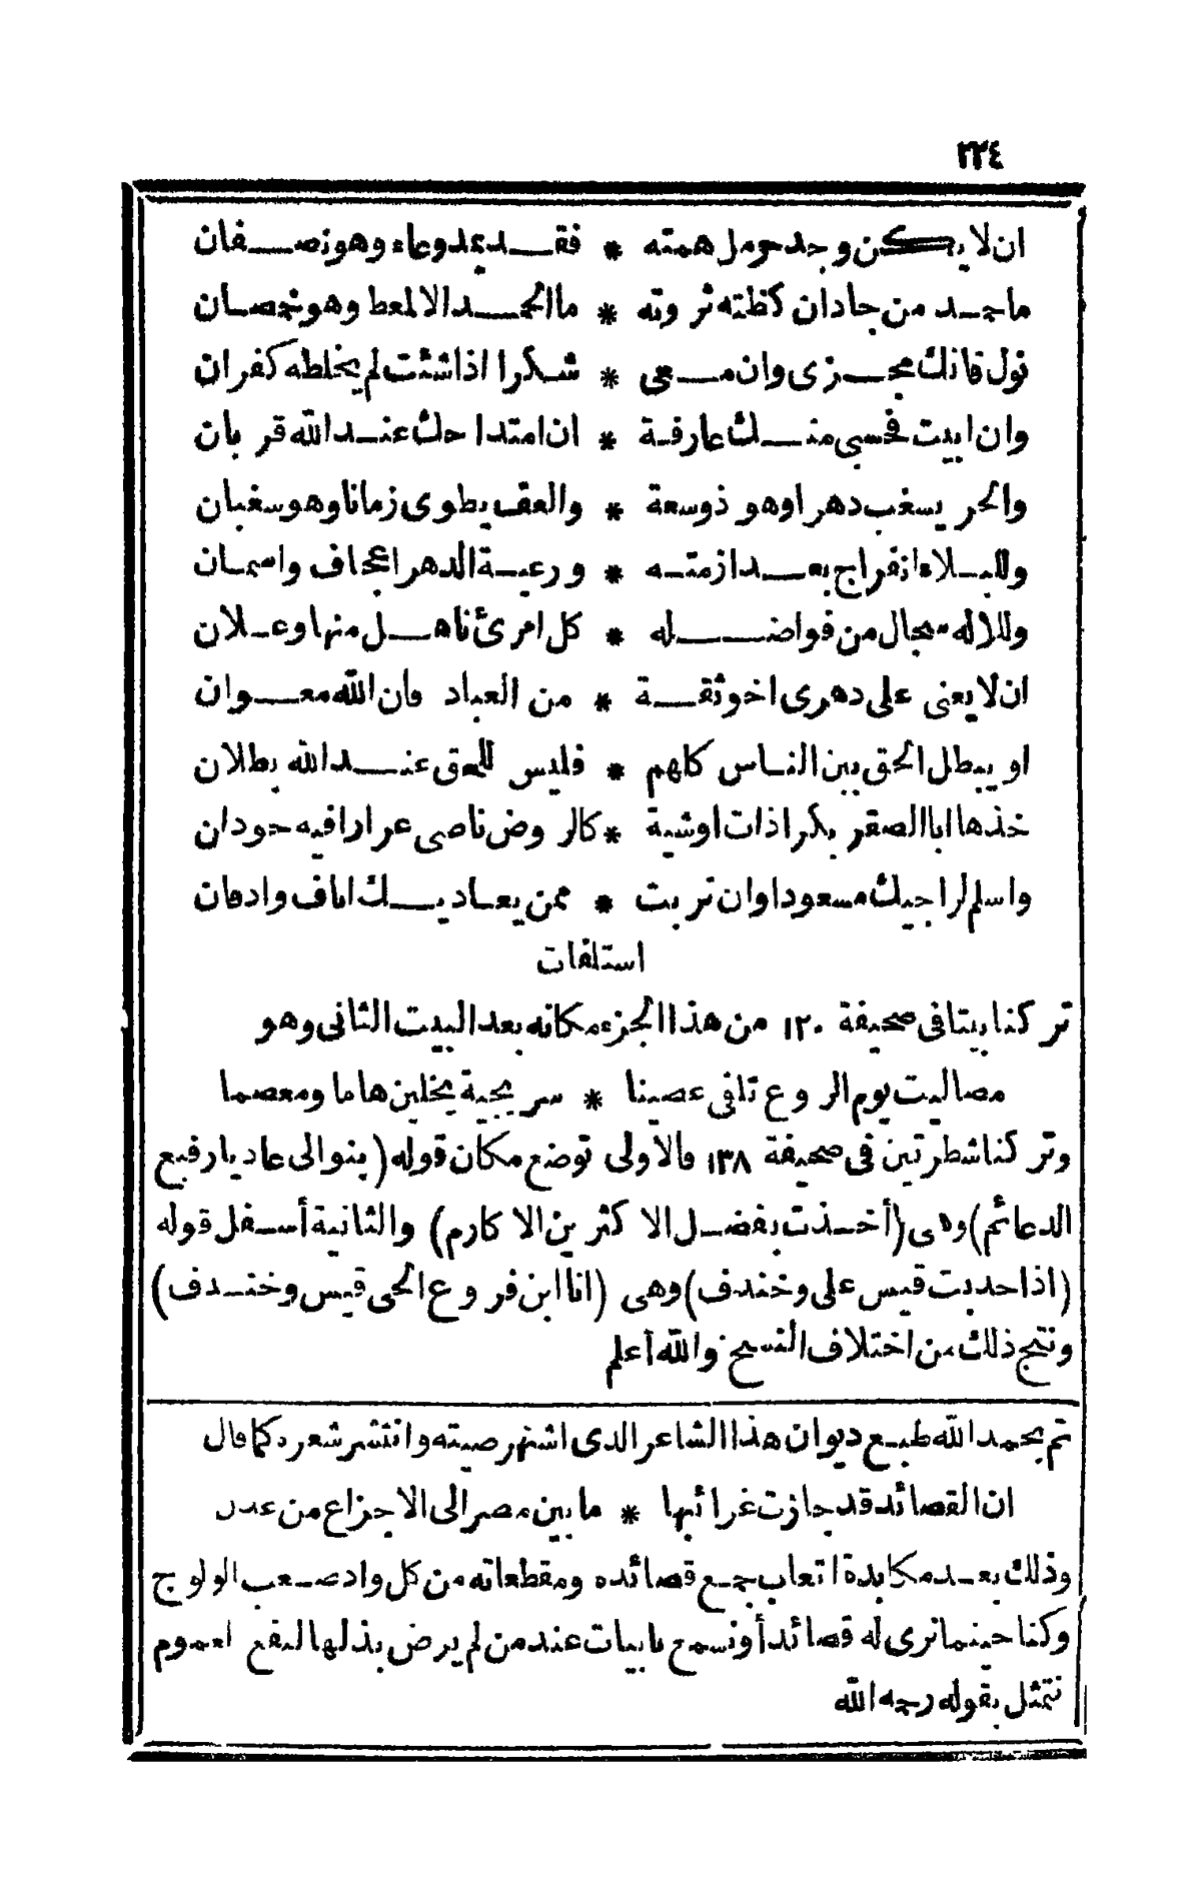 ٢٢٤
ان لا يكن وجد حر مل همته * فقد يمد وعاء وهو نصفان
ما جد من جاد ان كظته ثروته * ما الحمد الا لمعط وهو خمصان
نول فانك مجزى وان معى * شكرا اذا شئت لم يخلطه كفران
وان ابيت فحسبى منك عارفة * ان امتداحك عند الله قربان
والحر يسغب دهرا وهو ذو سعة * والعف يطوى زمانا وهو سغبان
وللبلاء انفراج بعد ازمته * ورعية الدهر اعجاف واسمان
وللاله سجال من فواضله * كل امرئ ناهل منها وعلان
ان لا يعنى على دهرى اخو ثقة * من العباد فان الله معوان
او يبطل الحق بين الناس كلهم * فليس للحق عند الله بطلان
خذها ابا الصقر بكرا ذات اوشية * كالروض ناصى عرارا فيه حوذان
واسلم لراجيك مسعودا وان تربت * ممن يعاديك اناف واذقان
استلفات
تركنا بيتا فى صحيفة ١٢٠ من هذا الجزء مكانه بعد البيت الثانى وهو
مصاليت يوم الروع تلفى عصينا * سريجية يخلين هاما ومعصما
وتركنا شطرتين فى صحيفة ١٣٨ فالأولى توضع مكان قوله (بنو الى عاديا رفيع
الدعائم) وهى (أخذت بفضل الاكثرين الاكارم) والثانية أسفل قوله
(اذا حدبت قيس على وخندف) وهى (انا ابن فروع الحى قيس وخندف)
ونتج ذلك من اختلاف النسخ والله أعلم
تم بحمد الله طبع ديوان هذا الشاعر الذى اشتهر صيته وانتشر شعره كما قال
ان القصائد قد جازت غرائبها * ما بين مصر الى الاجزاع من عدن
وذلك بعد مكابدة اتعاب جمع قصائده ومقطعاته من كل واد صعب الولوج
وكنا حينما نرى له قصائد أو نسمع بابيات عند من لم يرض بذلها لنفع العموم
نتمثل بقوله رحمه الله